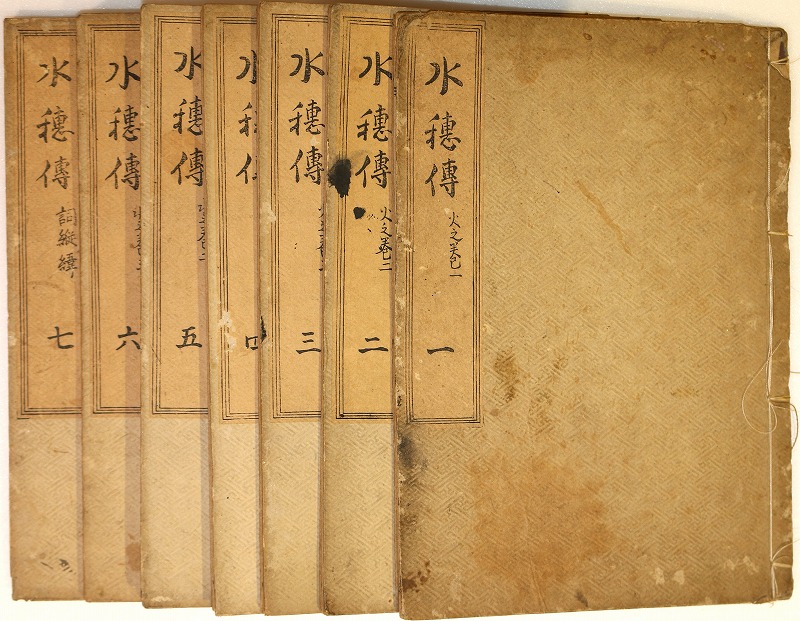 水穂傳
火之巻一
一
水穂傳
火之巻二
二
水穂傳
三
水穂傳
四
水穂傳
五
水穂傳
六
水穂傳
詞縦緯
七